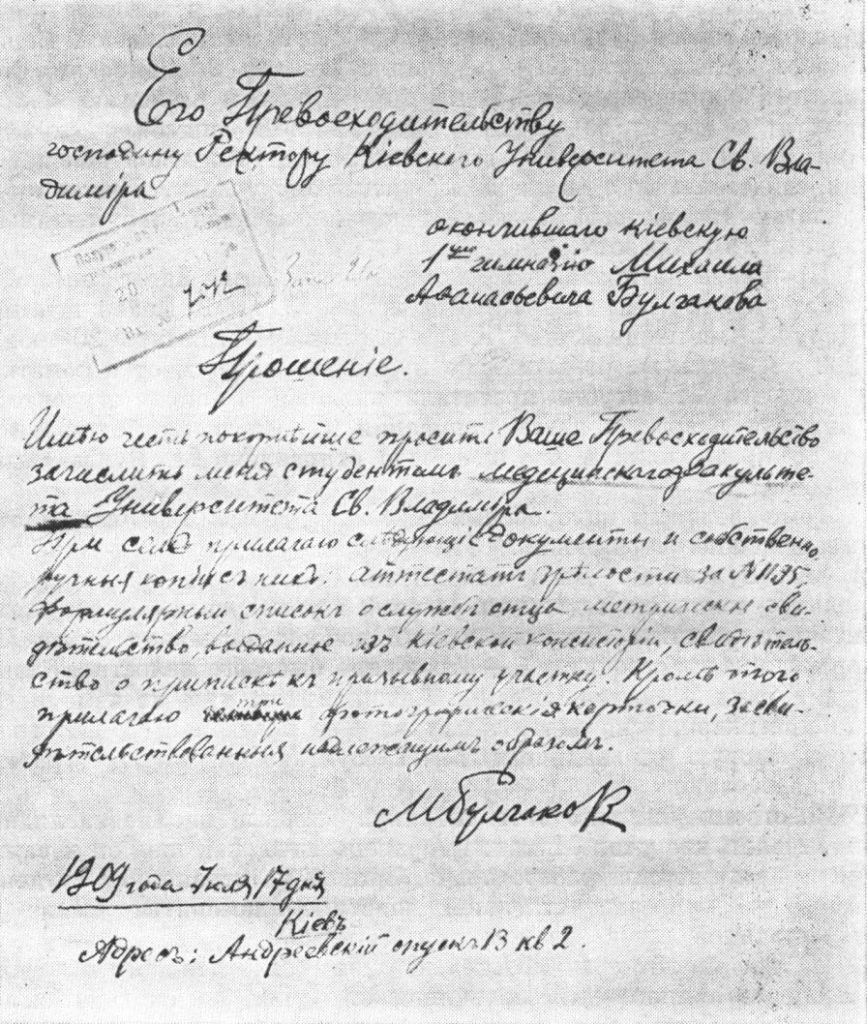 Его Превосходительству
господину Ректору Кіевского Университета Св. Вла-
диміра
окончившаго Кіевскую
1ую гимназію Михаила
Аѳанасьевича Булгакова
20
212
Прошеніе.
Имѣю честь покорнѣйше просить Ваше Превосходительство
зачислить меня студентомъ медицинскаго факульте-
та Университета Св. Владиміра.
При семъ прилагаю слѣдующіе документы и собственно
ручныя копіи съ нихъ: аттестатъ зрѣлости за № 1195,
формулярный списокъ о службѣ отца, метрическое сви-
дѣтельство, выданное изъ Кіевской консисторіи, свидѣтель-
ство о припискѣ къ призывному участку. Кромѣ того
прилагаю три фотографическія карточки, засви-
дѣтельствованныя надлежащимъ образомъ.
МБулгаковъ
1909 года Іюля 17 дня
Кіевъ
Адресъ: Андреевскій спускъ 13 кв 2.